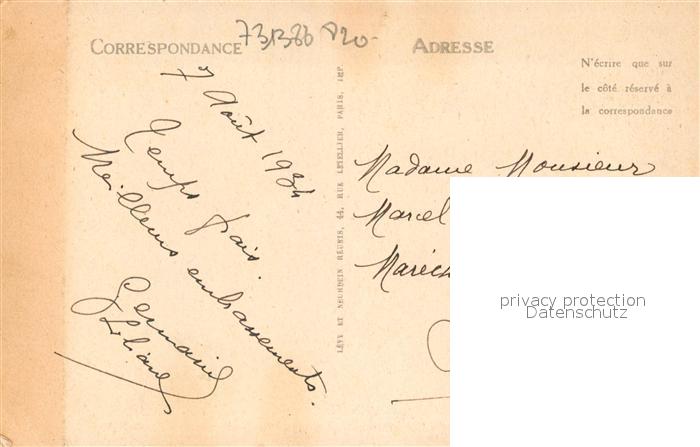 73B86 P20-
CORRESPONDANCE
ADRESSE
N'écrire que sur
le côté réservé à
la correspondance
7 Août 1934
Temps frais.
Meilleurs embrassements.
Germaine
Liliane
LÉVY ET NEURDEIN RÉUNIS, 44, RUE LETELLIER, PARIS, IMP.
Madame Monsieur
Marcel
Maréch
privacy protection
Datenschutz